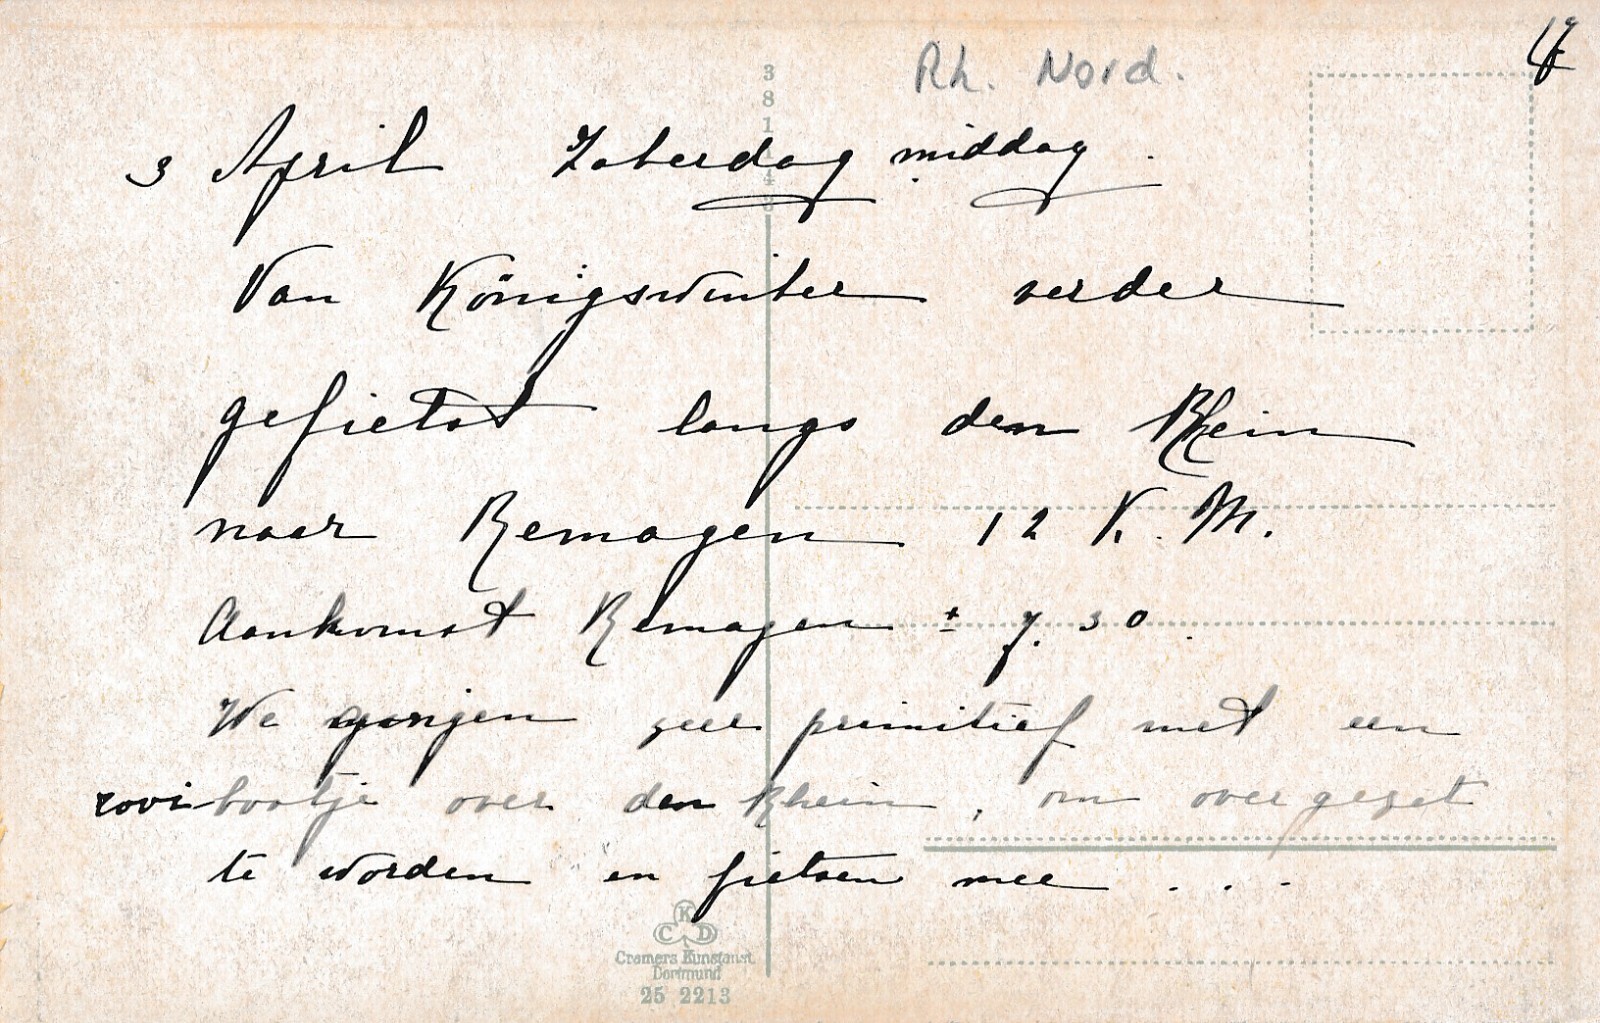 Rh. Nord.
3 April Zaterdag middag.
Van Königswinter verder
gefietst langs den Rhein
naar Remagen 12 K.M.
Aankomst Remagen ± 7.30.
We gangen zeer primitief met een
roeibootje over den Rhein, om over gezet
te worden en fietsen mee ...
3
8
1
4
3
K
C D
Cramers Kunstanst.
Dortmund
25 2213